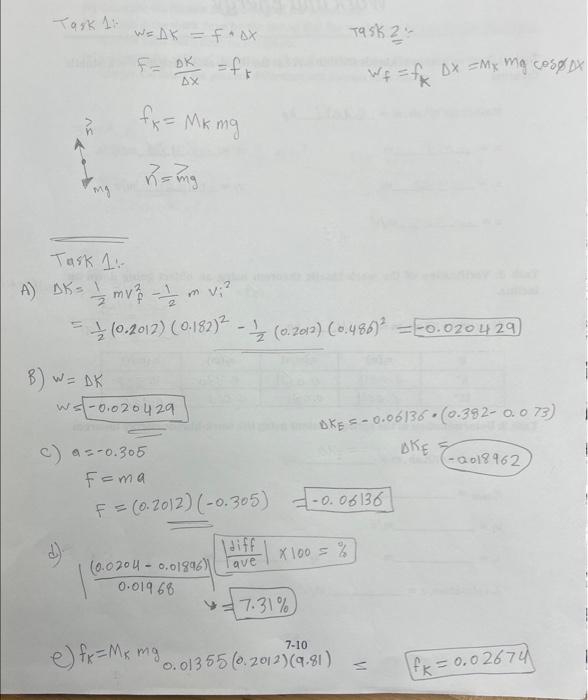 Task 1:-
W = ΔK = F • Δx
F = ΔK/Δx = fk
fk = Mk mg
n
mg
n = mg
Task 2:-
Wf = fk Δx = Mk mg cosø Δx
Task 1:-
A) ΔK = 1/2 mvf² - 1/2 m vi²
= 1/2 (0.2012)(0.182)² - 1/2 (0.2012)(0.486)² = -0.020429
B) W = ΔK
W = -0.020429
ΔKE = -0.06136 • (0.382 - 0.073)
ΔKE = -0.018962
C) a = -0.305
F = ma
F = (0.2012)(-0.305) = -0.06136
d) |(0.0204 - 0.01896)/0.01968| |diff/ave| x 100 = %
= 7.31%
7-10
e) fk = Mk mg 0.01355 (0.2012)(9.81) = fk = 0.02674